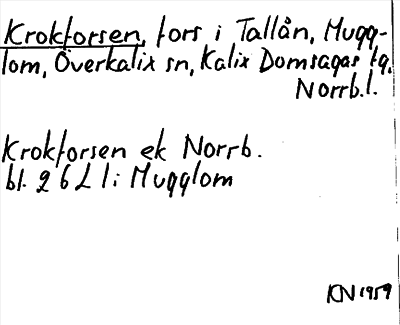 Krokforsen, fors i Tallån, Mugg-
lom, Överkalix sn, Kalix Domsagas tg,
Norrb.l.
Krokforsen ek Norrb.
bl. 26 L l i Mugglom
KN 1959